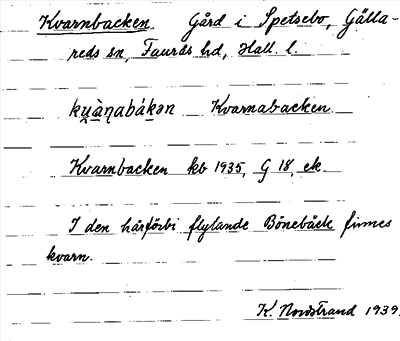 Kvarnbacken. Gård i Spetsebo, Gälla-
reds sn, Faurås hd, Hall. l.
kṷàṇabákən Kvarnabacken.
Kvarnbacken kb 1935, G 18, ek.
I den härförbi flytande Bönebäck finnes
kvarn.
K. Nordstrand 1939.